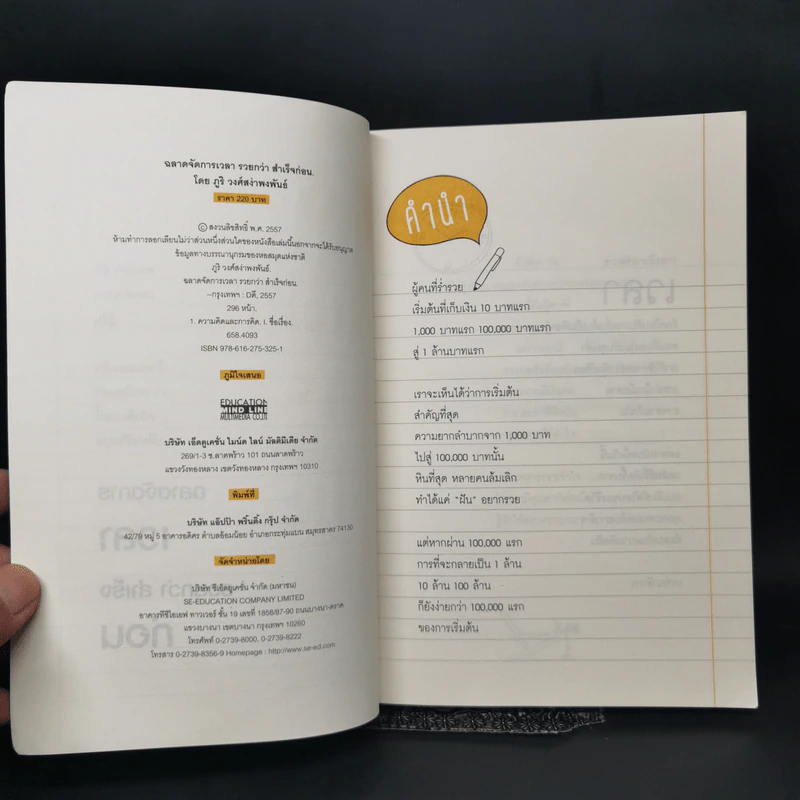 ฉลาดจัดการเวลา รวยกว่า สำเร็จก่อน.
โดย ภูริ วงศ์สง่าพงพันธ์
ราคา 220 บาท
© สงวนลิขสิทธิ์ พ.ศ. 2557
ห้ามทำการลอกเลียนไม่ว่าส่วนหนึ่งส่วนใดของหนังสือเล่มนี้นอกจากจะได้รับอนุญาต
ข้อมูลทางบรรณานุกรมของหอสมุดแห่งชาติ
ภูริ วงศ์สง่าพงพันธ์.
ฉลาดจัดการเวลา รวยกว่า สำเร็จก่อน.
--กรุงเทพฯ : Dดี, 2557
296 หน้า.
1. ความคิดและการคิด. I. ชื่อเรื่อง.
658.4093
ISBN 978-616-275-325-1
ภูมิใจเสนอ
EDUCATION
MIND LINE
MULTIMEDIA CO.,LTD
บริษัท เอ็ดดูเคชั่น ไมน์ด ไลน์ มัลติมีเดีย จำกัด
269/1-3 ซ.ลาดพร้าว 101 ถนนลาดพร้าว
แขวงวังทองหลาง เขตวังทองหลาง กรุงเทพฯ 10310
พิมพ์ที่
บริษัท แอ๊ปป้า พริ้นติ้ง กรุ๊ป จำกัด
42/79 หมู่ 5 อาคารอดิศร ตำบลอ้อมน้อย อำเภอกระทุ่มแบน สมุทรสาคร 74130
จัดจำหน่ายโดย
บริษัท ซีเอ็ดยูเคชั่น จำกัด (มหาชน)
SE-EDUCATION COMPANY LIMITED
อาคารทีซีไอเอฟ ทาวเวอร์ ชั้น 19 เลขที่ 1858/87-90 ถนนบางนา-ตราด
แขวงบางนา เขตบางนา กรุงเทพฯ 10260
โทรศัพท์ 0-2739-8000, 0-2739-8222
โทรสาร 0-2739-8356-9 Homepage : http://www.se-ed.com
คำนำ
ผู้คนที่ร่ำรวย
เริ่มต้นที่เก็บเงิน 10 บาทแรก
1,000 บาทแรก 100,000 บาทแรก
สู่ 1 ล้านบาทแรก
เราจะเห็นได้ว่าการเริ่มต้น
สำคัญที่สุด
ความยากลำบากจาก 1,000 บาท
ไปสู่ 100,000 บาทนั้น
หินที่สุด หลายคนล้มเลิก
ทำได้แค่ "ฝัน" อยากรวย
แต่หากผ่าน 100,000 แรก
การที่จะกลายเป็น 1 ล้าน
10 ล้าน 100 ล้าน
ก็ยังง่ายกว่า 100,000 แรก
ของการเริ่มต้น